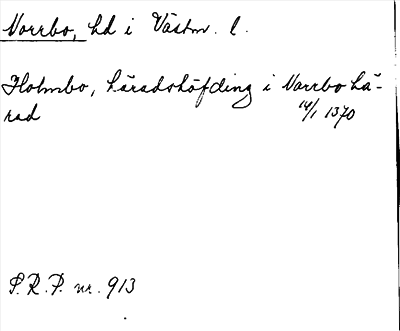 Norrbo, hd i Västm. l.
Holmbo, häradshöfding i Norrbo hä-
rad 14/1 1370
S.R.P. nr. 913